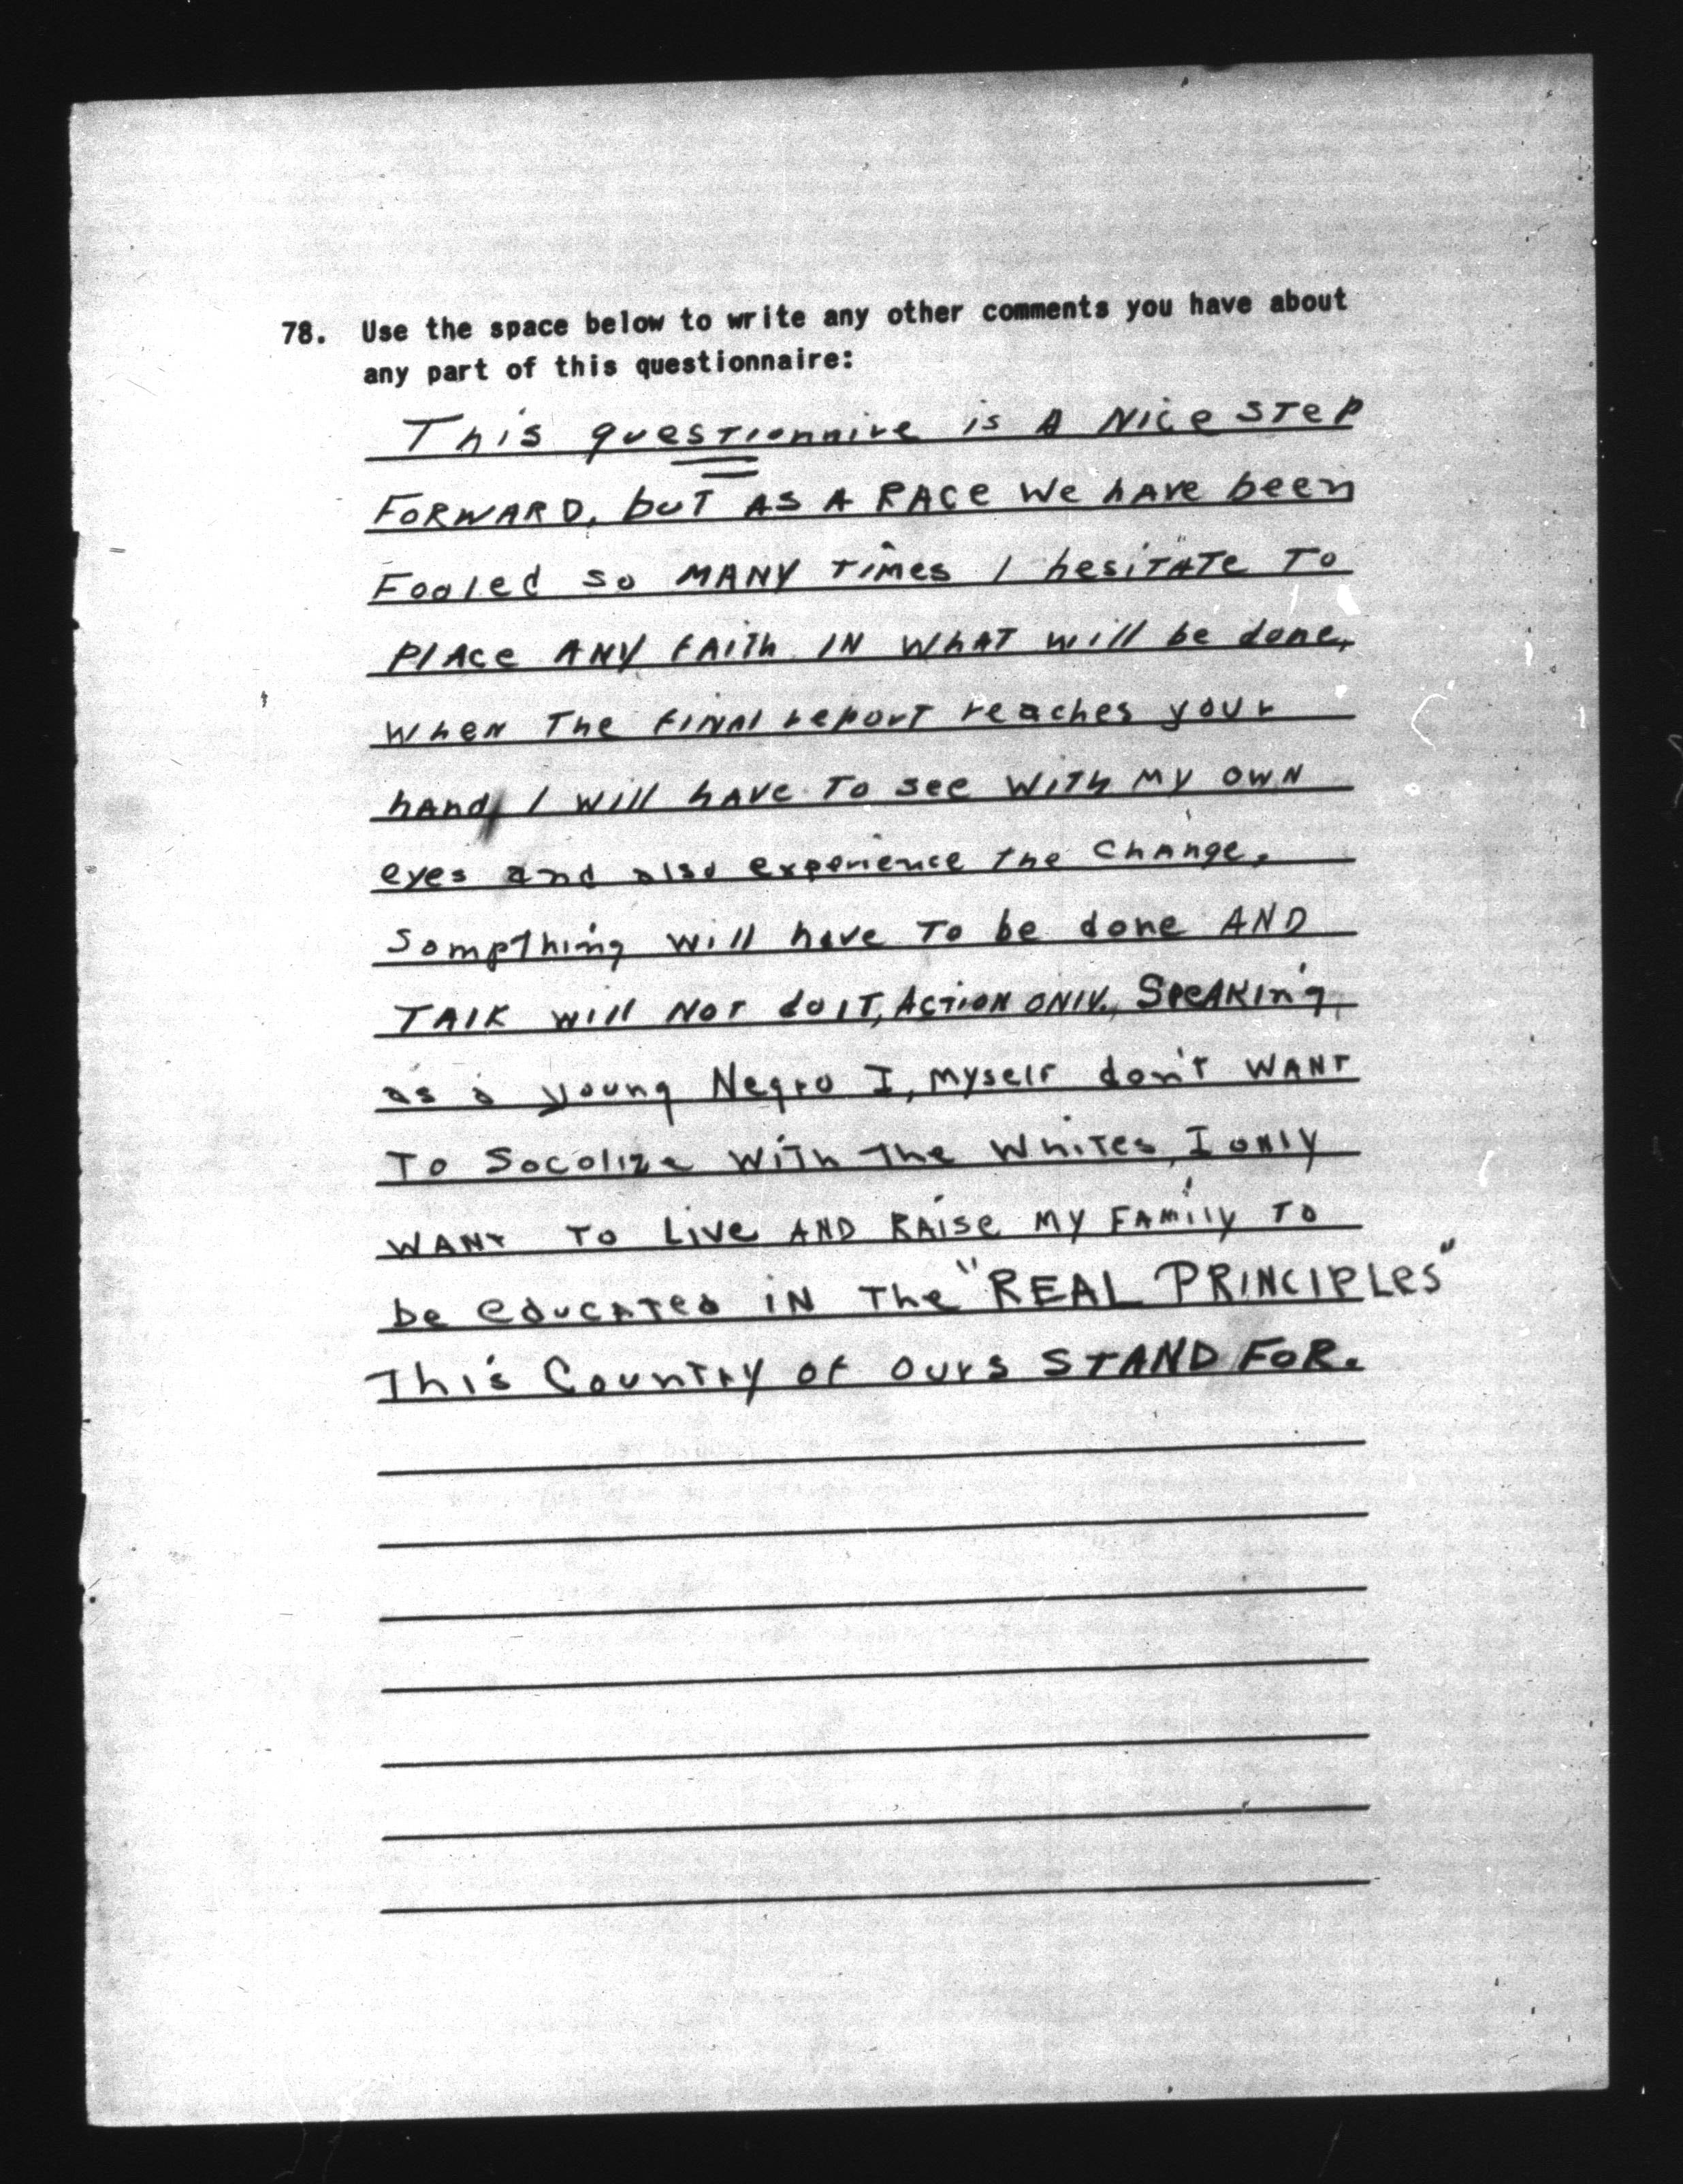 78. Use the space below to write any other comments you have about
any part of this questionnaire:
This questionnire is A Nice STeP
FORWARD, buT AS A RACe We hAve been
Fooled so MANY Times I hesiTATe To
PlAce ANY FAiTh IN WhAT will be done,
WheN The FINAl report reaches your
hAnd, I will hAve To see WiTh MY OWN
eyes and also experience the ChAnge.
Sompthing will have To be done AND
TAlK will NoT do IT, AcTioN ONlY. SpeAKing
as a young Negro I, myself don't WANT
To Socolize WiTh The WhiTes, I only
WANT To Live AND RAise MY FAmily To
be educATed iN The "REAL PRINCIPLes"
This CounTry of ours STAND FOR.